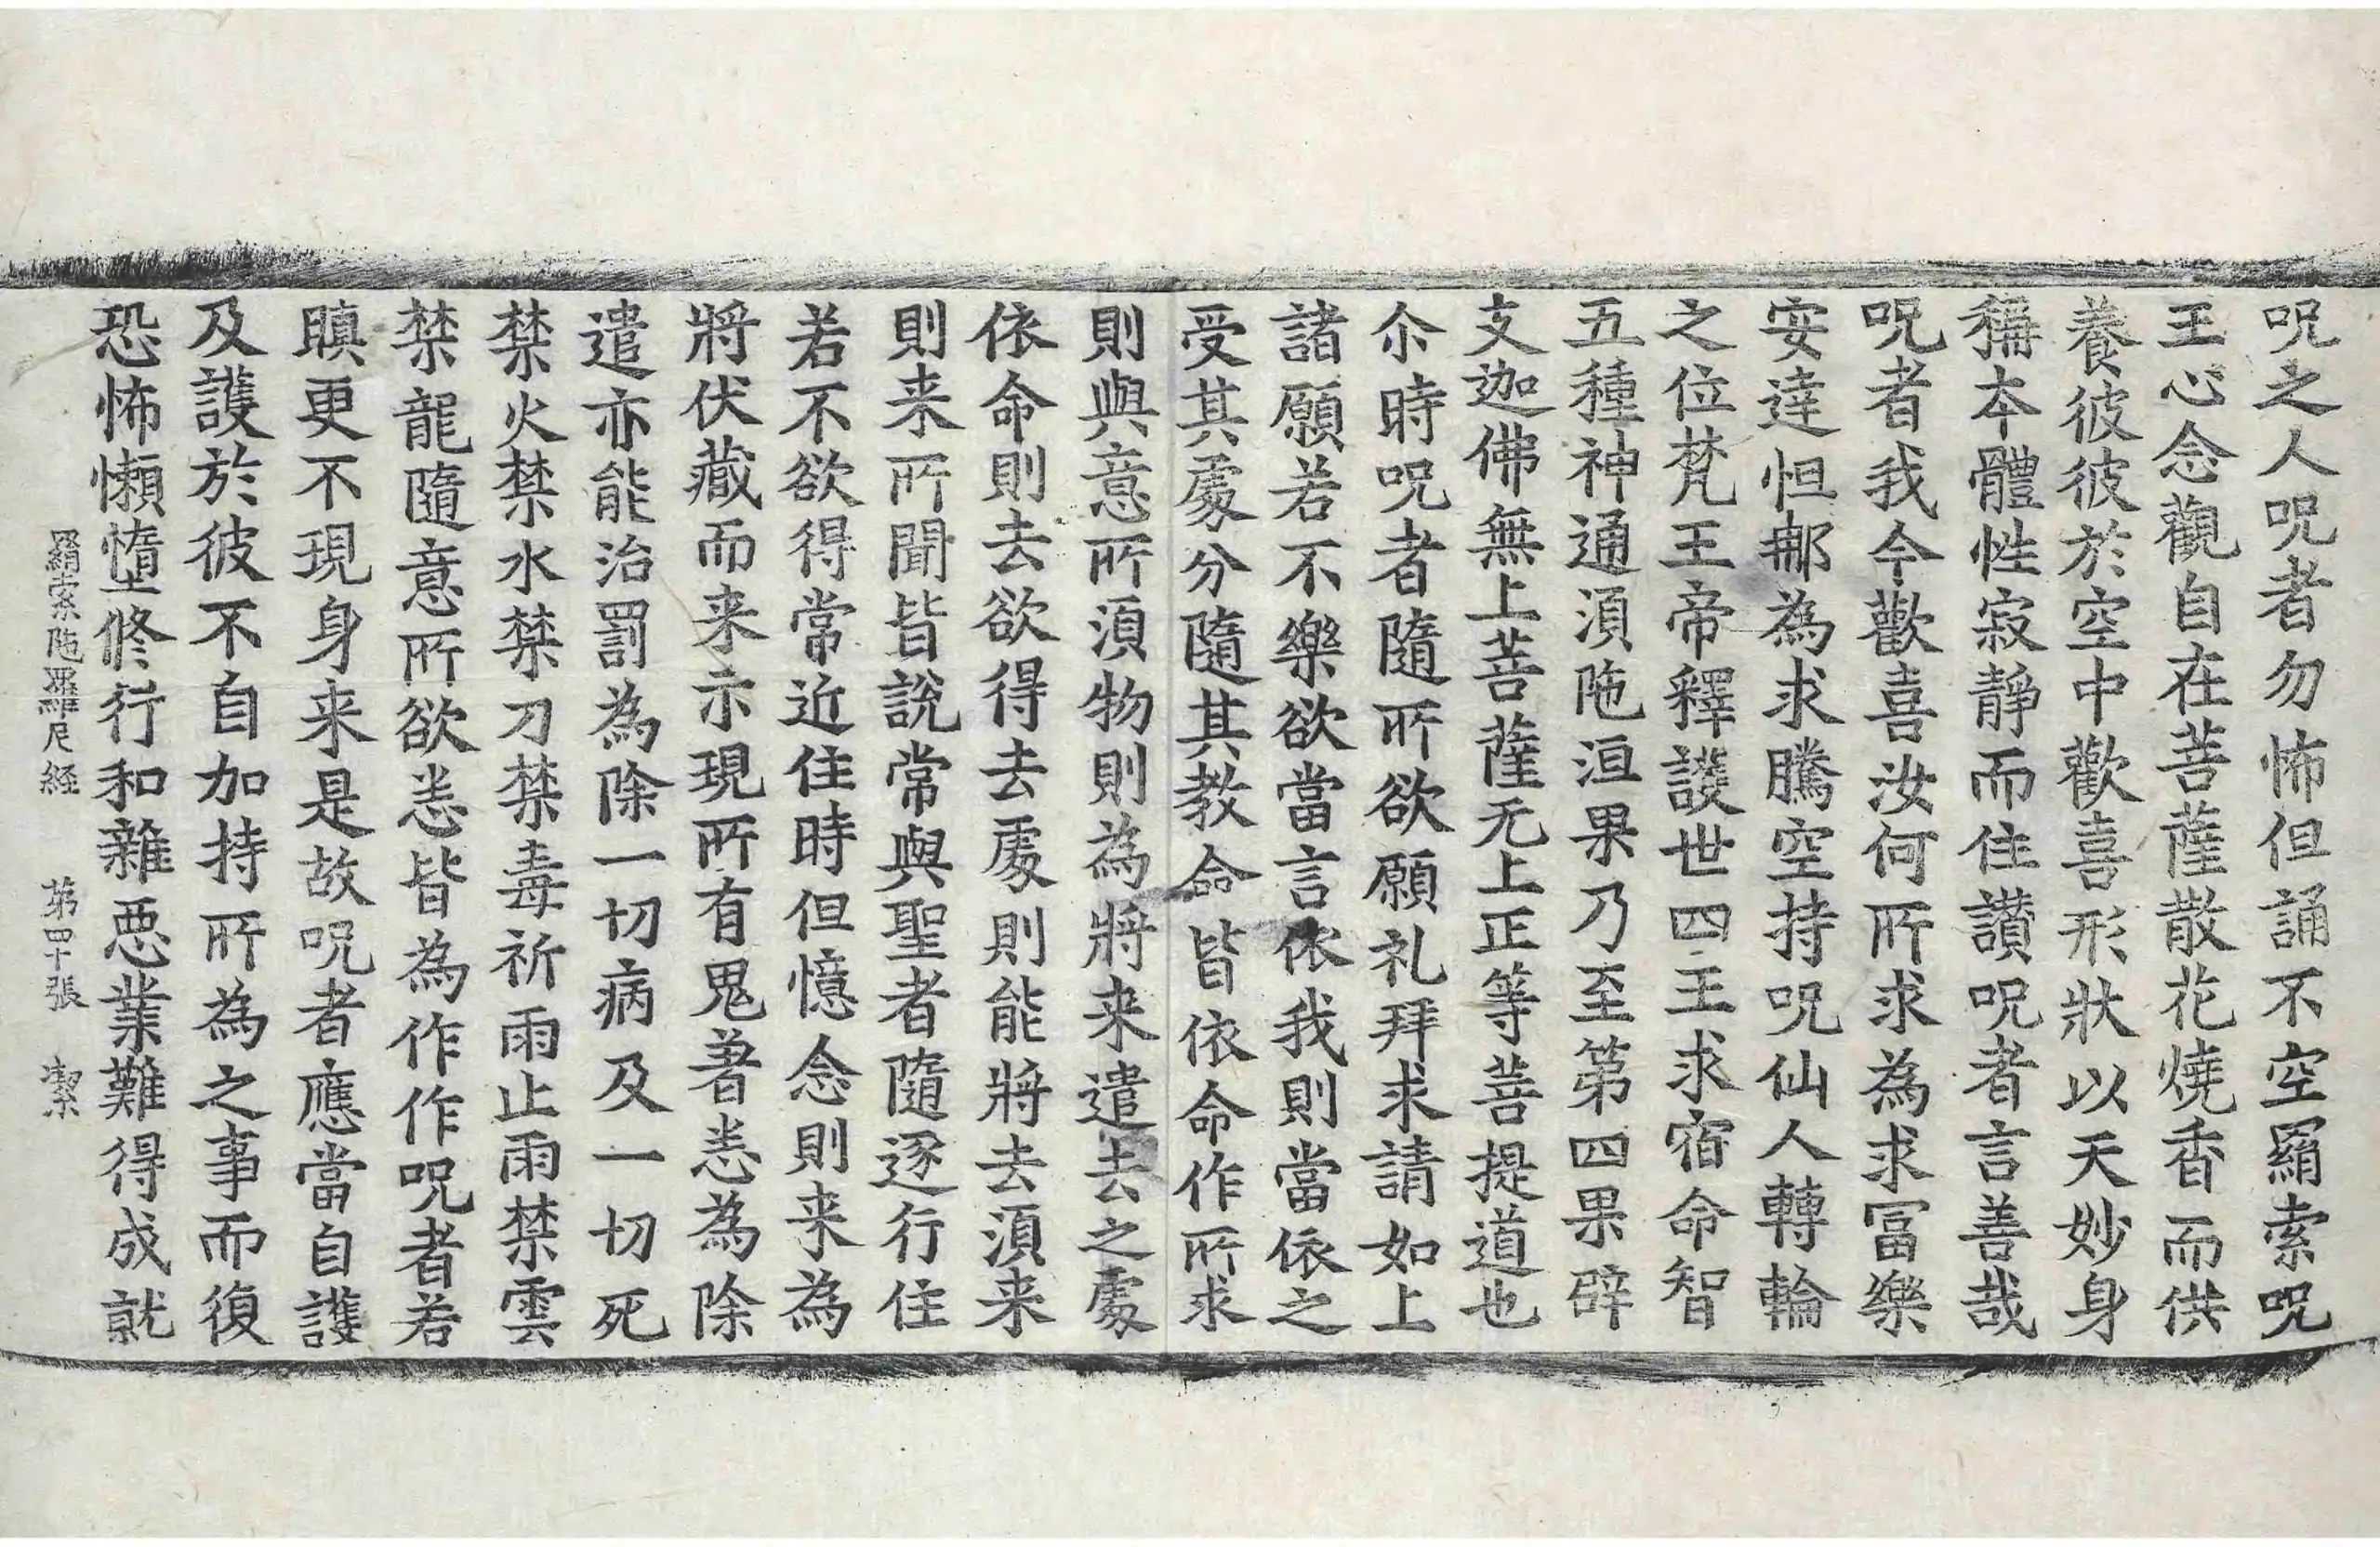 呪之人呪者勿怖但誦不空羂索呪
王心念觀自在菩薩散花燒香而供
養彼彼於空中歡喜形狀以天妙身
稱本體性寂靜而住讚呪者言善哉
呪者我今歡喜汝何所求為求冨樂
安達怛郍為求騰空持呪仙人轉輪
之位梵王帝釋護世四王求宿命智
五種神通湏陁洹果乃至第四果辟
支迦佛無上菩薩无上正等菩提道也
尒時呪者隨所欲願礼拜求請如上
諸願若不樂欲當言依我則當依之
受其處分隨其教命皆依命作所求
則與意所湏物則為將来遣去之處
依命則去欲得去處則能將去湏来
則来所聞皆說常與聖者隨逐行住
若不欲得常近住時但憶念則来為
將伏藏而来示現所有鬼著恙為除
遣亦能治罰為除一切病及一切死
禁火禁水禁刀禁毒祈雨止雨禁雲
禁龍隨意所欲恙皆為作作呪者若
瞋更不現身来是故呪者應當自護
及護於彼不自加持所為之事而復
恐怖懶惰修行和雜惡業難得成就
羂索陁羅尼経　第四十張　潔